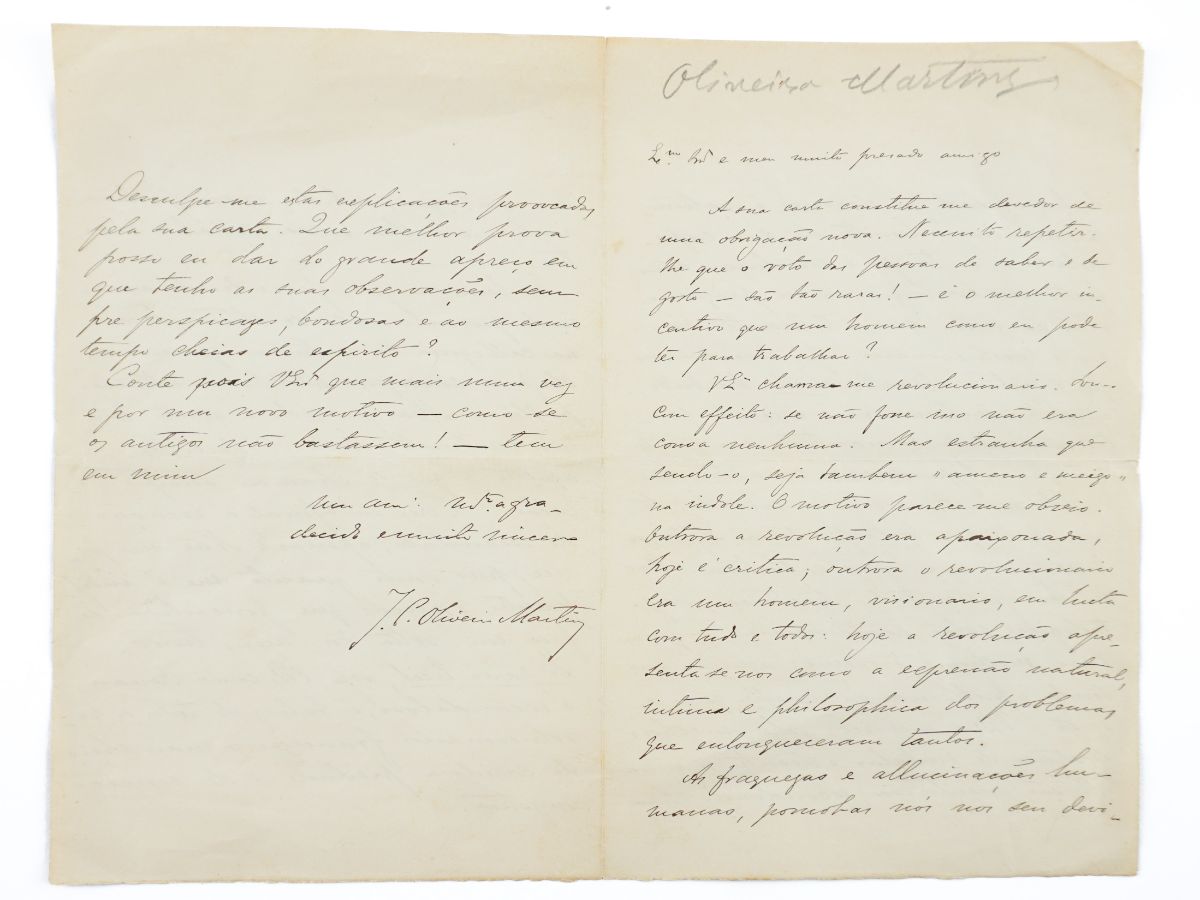 Oliveira Martins
Exmo Snr e meu muito presado amigo
A sua carta constitue-me devedor de
uma obrigação nova. Necessito repetir-
lhe que o voto das pessoas de saber e de
gosto — são tão raras! — é o melhor in-
centivo que um homem como eu pode
ter para trabalhar?
VExa chama-me revolucionario. Sou-o
com effeito: se não fosse isso não era
cousa nenhuma. Mas estranha que
sendo-o, seja tambem "ameno e meigo"
na indole. O motivo parece-me obvio.
Outrora a revolução era apaixonada,
hoje é critica; outrora o revolucionario
era um homem, visionario, em lucta
com tudo e todos: hoje a revolução apre-
senta-se-nos como a expressão natural,
intima e philosophica dos problemas
que enlouqueceram tantos.
As fraquezas e allucinações hu-
manas, pomol-as nós no seu devi-
Desculpe-me estas explicações provocadas
pela sua carta. Que melhor prova
posso eu dar do grande apreço em
que tenho as suas observações, sem-
pre perspicazes, bondosas e ao mesmo
tempo cheias de espirito?
Conte pois VExa que mais uma vez
e por um novo motivo — como se
os antigos não bastassem! — tem
em mim
um am: mto agra-
decido e muito sincero
J. P. Oliveira Martins